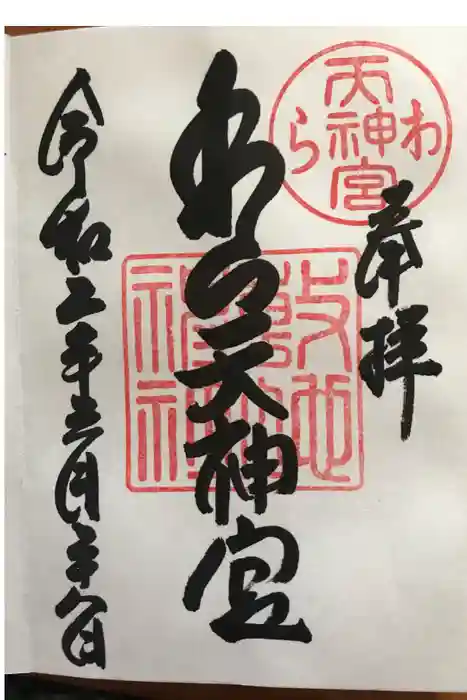 奉拝
わら
天神宮
わら天神宮
敷地
神社
令和二年三月 日